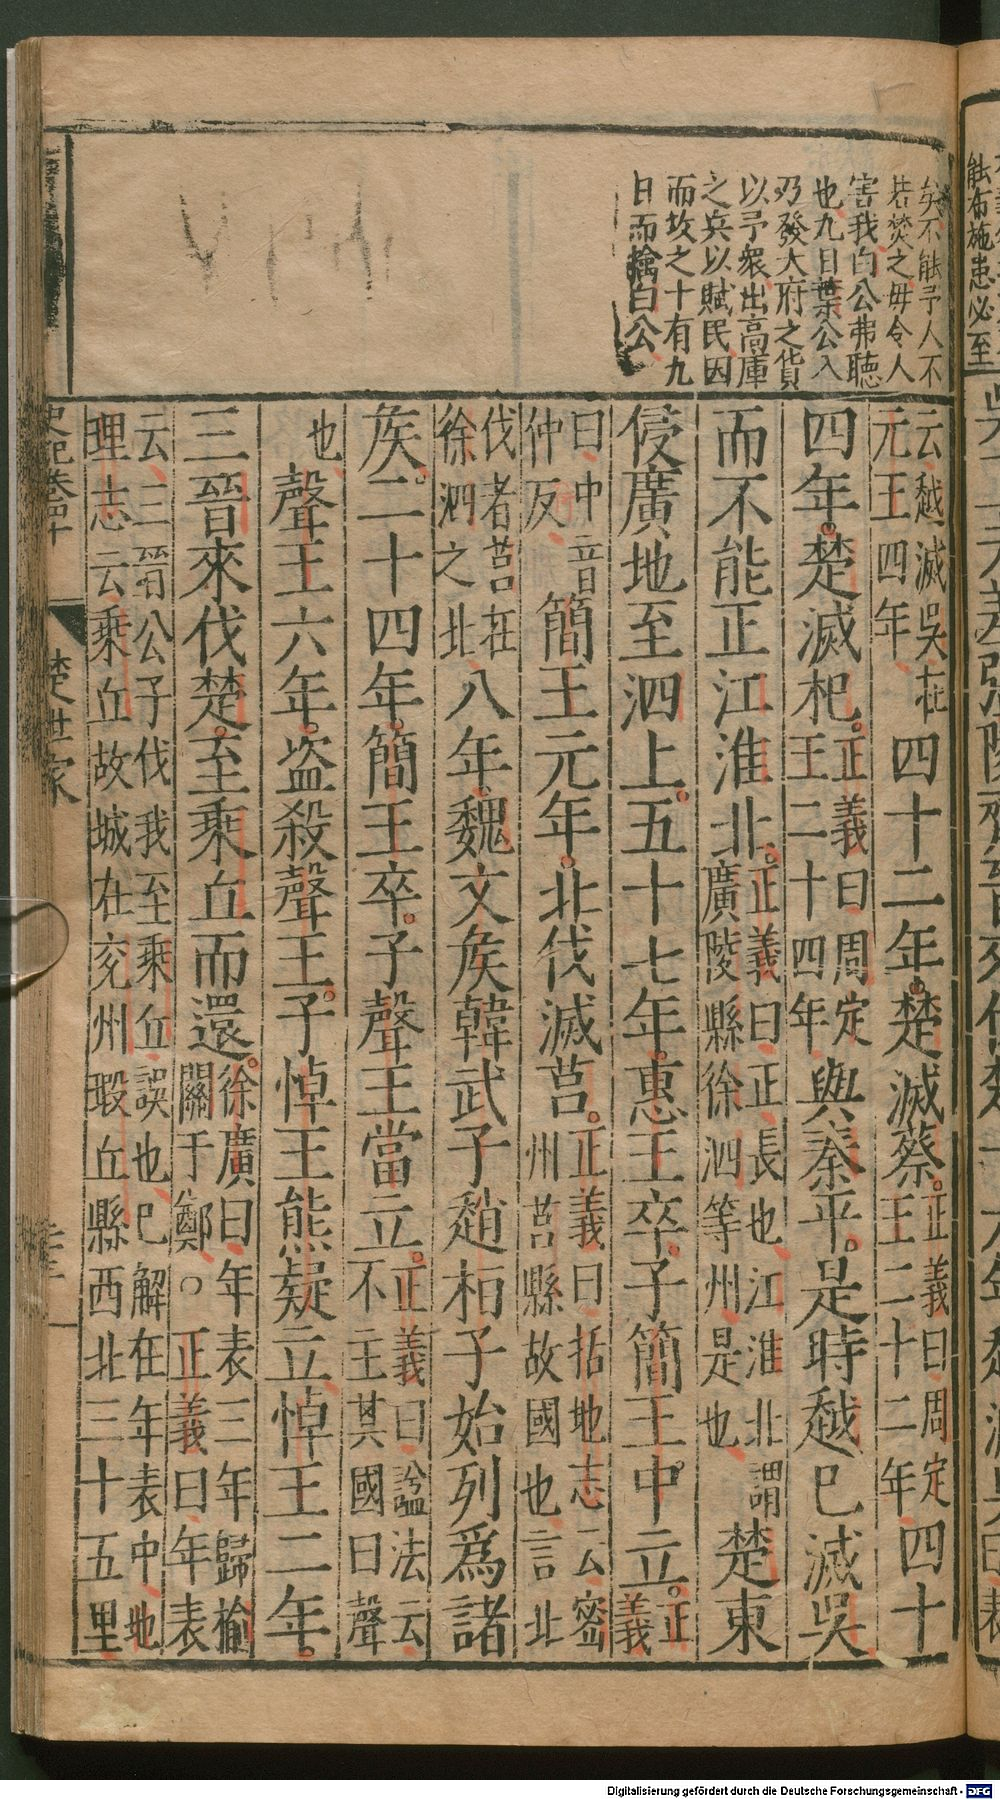 矣不能予人不
若焚之毋令人
害我白公弗聴
也九日葉公入
乃發大府之貨
以予衆出高庫
之兵以賦民因
而攻之十有九
日而擒白公
能布施患必至
云越滅吳在
元王四年
四十二年楚滅蔡
正義曰周定
王二十二年
四十
四年楚滅杞
正義曰周定
王二十四年
與秦平是時越已滅吳
而不能正江淮北
正義曰正長也江淮北謂
廣陵縣徐泗等州是也
楚東
侵廣地至泗上五十七年惠王卒子簡王中立
正
義
曰中音
仲反
簡王元年北伐滅莒
正義曰括地志云密
州莒縣故國也言北
伐者莒在
徐泗之北
八年魏文矦韓武子趙桓子始列爲諸
矦二十四年簡王卒子聲王當立
正義曰諡法云
不主其國曰聲
也
聲王六年盗殺聲王子悼王熊疑立悼王二年
三晉來伐楚至乘丘而還
徐廣曰年表三年歸榆
關于鄭○正義曰年表
云三晉公子伐我至乘丘誤也已解在年表中地
理志云乘丘故城在兖州瑕丘縣西北三十五里
史記卷四十
楚世家
Digitalisierung gefördert durch die Deutsche Forschungsgemeinschaft - DFG